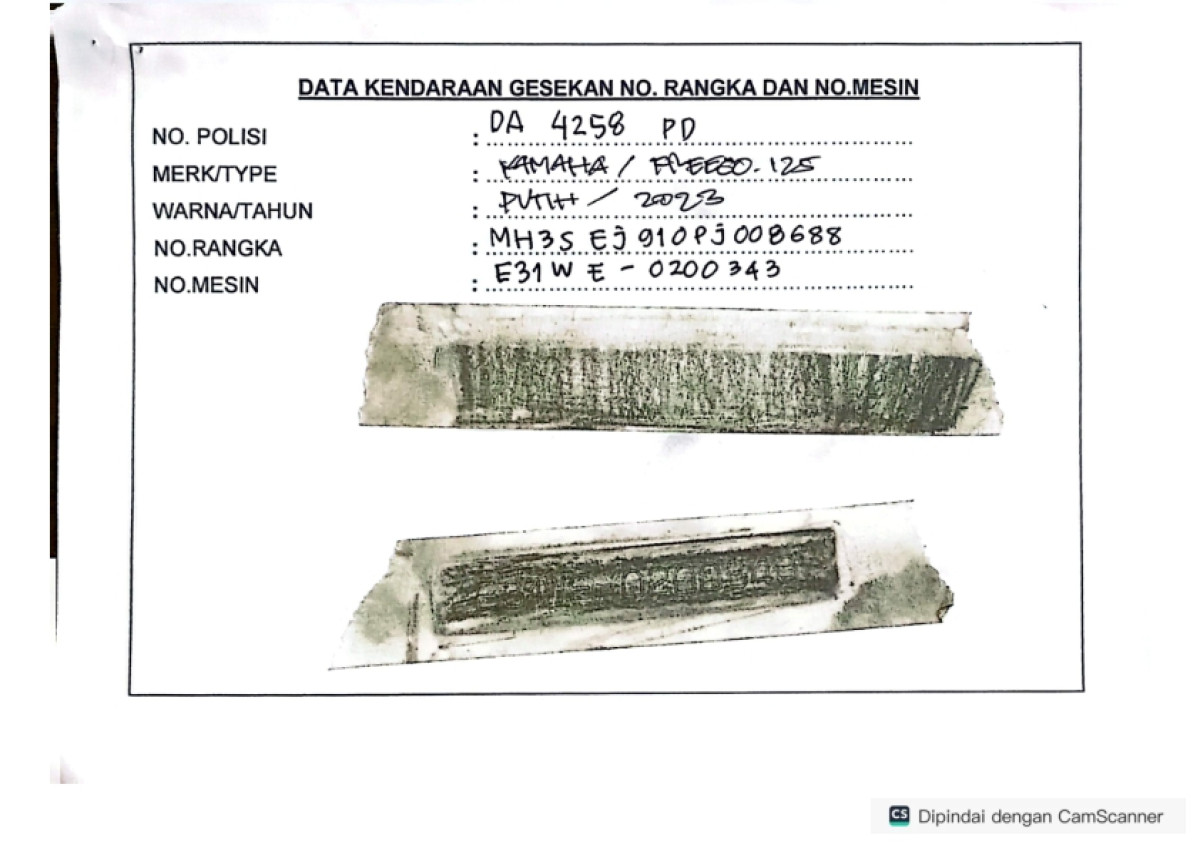 DATA KENDARAAN GESEKAN NO. RANGKA DAN NO.MESIN
NO. POLISI : DA 4258 PD
MERK/TYPE : YAMAHA / FREEGO.125
WARNA/TAHUN : PUTIH / 2023
NO.RANGKA : MH3SEJ910PJ008688
NO.MESIN : E31WE-0200343
CS Dipindai dengan CamScanner